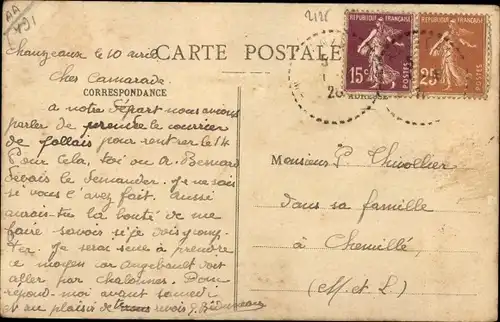 AA
491
2128
Chanzeaux le 10 avril
CARTE POSTALE
REPUBLIQUE FRANÇAISE
15c
POSTES
REPUBLIQUE FRANÇAISE
25c
POSTES
Cher Camarade
CORRESPONDANCE
ADRESSE
a notre départ nous avions
parler de prendre le courrier
de Jallais pour rentrer le 14
Pour Cela, toi ou A. Besnard
devais le demander. Je ne sais
si vous l'avez fait. Aussi
aurais-tu la bonté de me
faire savoir si je dois y comp-
ter. Je serai seul à prendre
ce moyen car Angebault doit
aller par Chalonnes. Donc
repond-moi avant samedi
et au plaisir de revois
Monsieur P. Thivollier
dans sa famille
à Chemillé
(M. et L.)